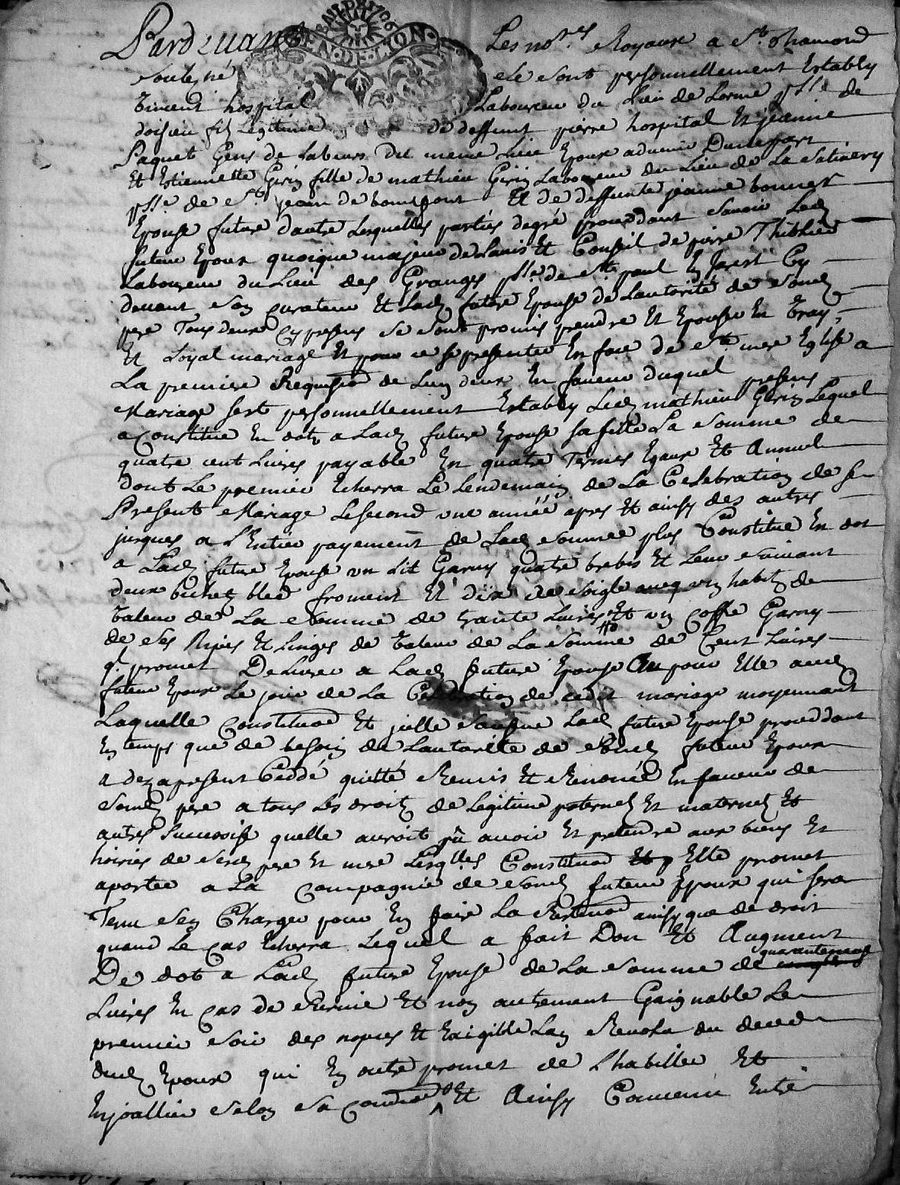 Pardevant Les no.res Royaux a St chamond
soulsigné ce sont personnellement Estably
vincent hospital Laboureur du Lieu de Lorme psse de
doisieu fil Legitime de deffunt pierre hospital Et jeanne
paquet Gens de Labeurs du meme Lieu Epoux advenir Dunepart
Et Estiennette Gerin fille de mathieu Gerin Laboureur du Lieu de La
psse de St jean de bonnefont Et de deffunte jeanne bonnet
Epouse future dautre Lesquelles parties degré procedant savoir Led
futur Epoux quoique majeur de Lavis Et Conseil de pierre Thiblier
Laboureur du Lieu des Granges psse de St paul En Jarest Cy
devant son curateur Et Lad future Epouse de Lautorité de Sond
pere Tous deux Cy presens se sont promis prendre Et Epouser En vray
Et Loyal mariage Et pour ce se presenter En face de Ste mere Eglise a
La premiere Requisition de Lun deux En faveur duquel presens
Mariage sest personnellement Estably Led mathieu Gerin Lequel
a Constitué En dot a Lad future Epouse sa fille La Somme de
quatre cent Livres payable En quatre Termes Egaux Et Annuel
dont Le premier Echerra Le Lendemain de La Celebration de se
Present Mariage Lesecond une année apres Et ainsy des autres
jusques a L'Entier payement de Lad somme plus Constitue En dot
a Lad future Epouse un Lit Garny quatre brebis Et Leur suivant
deux bichet bled froment Et dix de soigle avec un habit de
valeur de La somme de trante Livres Et un coffre Garny
de ses Nipes Et Linges de valeur de La somme de Cent Livres
ql promet Delivrer a Lad future Epouse Ou pour Elle aud
futur Epoux Le jour de La Celebration de cedit mariage moyennant
Laquelle Constitution Et jcelle Lad future Epouse procedant
En temps que de besoin de Lautorité de Sond futur Epoux
a dez apresent Ceddé quitté Remis Et Renoncé En faveur de
Sond pere a tous Les droits de Legitime paternel Et maternel Et
autres Successifs quelle auroit pû avoir Et pretendre aux biens Et
hoiries de Sesd pere Et mere Lesqlles Constitution Elle promet
aporter a La Compagnie de Sond futur Epoux qui sera
Tenu sen Charger pour En faire La Restitution ainsy que de droit
quand Le cas Echerra Lequel a fait Don Et Augment
De dot a Lad future Epouse de La Somme de quaranteneuf
Livres En cas de survie Et non autrement Gaignable Le
premier soir des nopces Et Exigible Lan Revolu du deced
dud Epoux qui En outre promet de L'habiller Et
Enjoallier selon sa condition Et Ainsy Convenu Entre